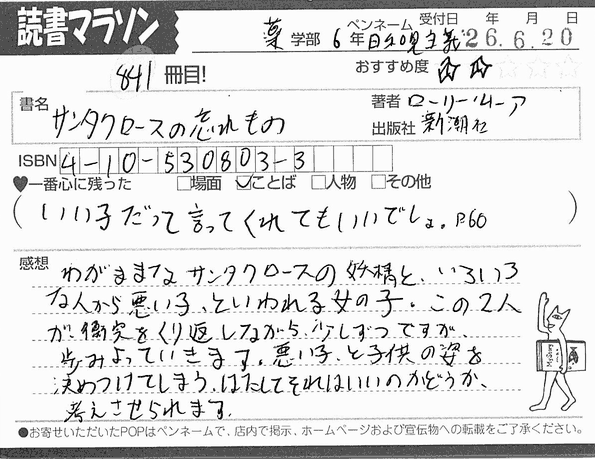 読書マラソン
薬学部 6年 ペンネーム 自然現主義 受付日 年 月 日 26.6.20
841冊目! おすすめ度 ☆☆☆☆☆
書名 サンタクロースの忘れもの 著者 ローリー・ムーア
出版社 新潮社
ISBN 4-10-530803-3
♥一番心に残った □場面 ☑ことば □人物 □その他
(いい子だって言ってくれてもいいでしょ。P60)
感想 わがままなサンタクロースの妖精と、いろいろ
な人から悪い子、といわれる女の子。この2人
が、衝突をくり返しながら、少しずつですが、
歩みよっていきます。悪い子、と子供の姿を
決めつけてしまう、はたしてそれはいいのかどうか、
考えさせられます。
●お寄せいただいたPOPはペンネームで、店内で掲示、ホームページおよび宣伝物への転載をご了承ください。